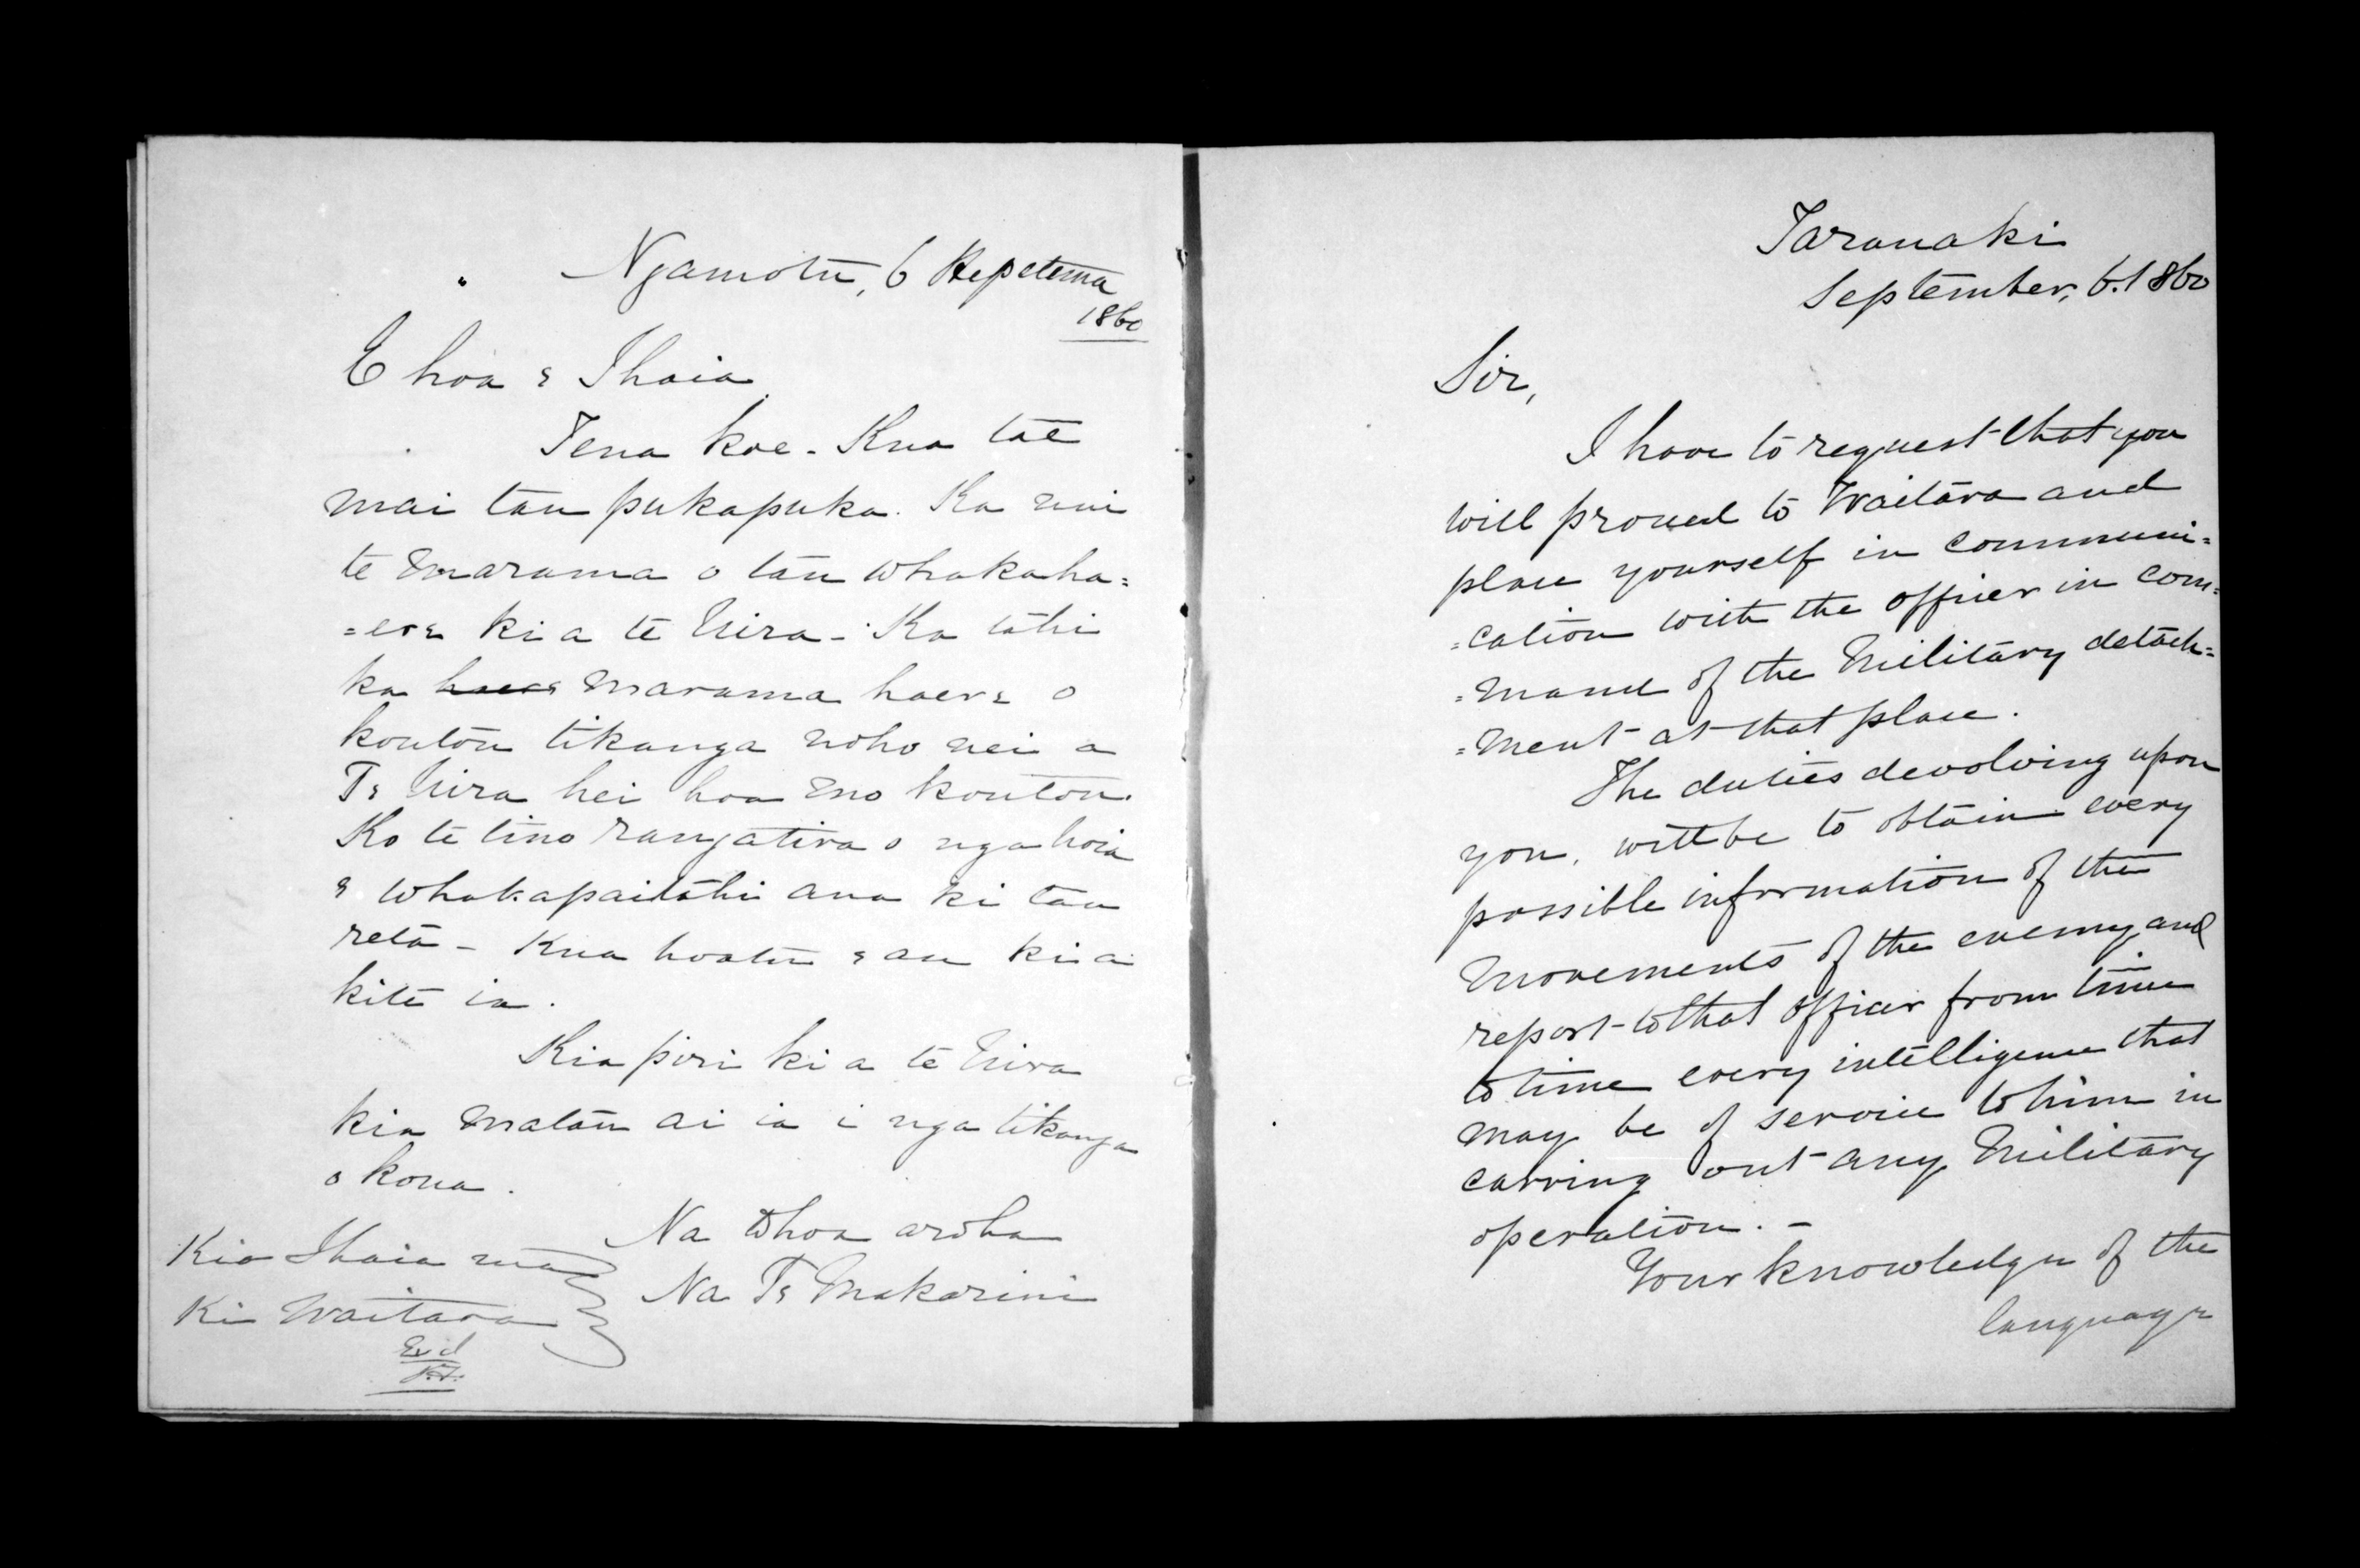 Ngamotu, 6 Hepetema
1860
E hoa e Ihaia
Tena koe - Kua tae
mai tau pukapuka. Ka nui
te marama o tau whakaha=
=ere kia te Uira - Ka tahi
ka haere marama haere o
koutou tikanga noho nei a
Te Uira hei hoa mo koutou.
Ko te tino rangatira o nga hoia
e whakapaitahi ana ki tau
reta - Kua hoatu e au kia
kite ia.
Kia piri kia te Uira
kia matau ai ia i nga tikanga
o kona.
Na tohoa aroha
Na Te Makarini
Kia Ihaia ma
Ki Waitara
Exd
Taranaki
September, 6. 1860
Sir,
I have to request that you
will proceed to Waitara and
place yourself in communi=
=cation with the officer in com=
=mand of the Military detach=
=ment at that place.
The duties devolving upon
you, will be to obtain every
possible information of the
movements of the enemy, and
report to that officer from time
to time every intelligence that
may be of service to him in
carring out any Military
operation. -
Your knowledge of the
language